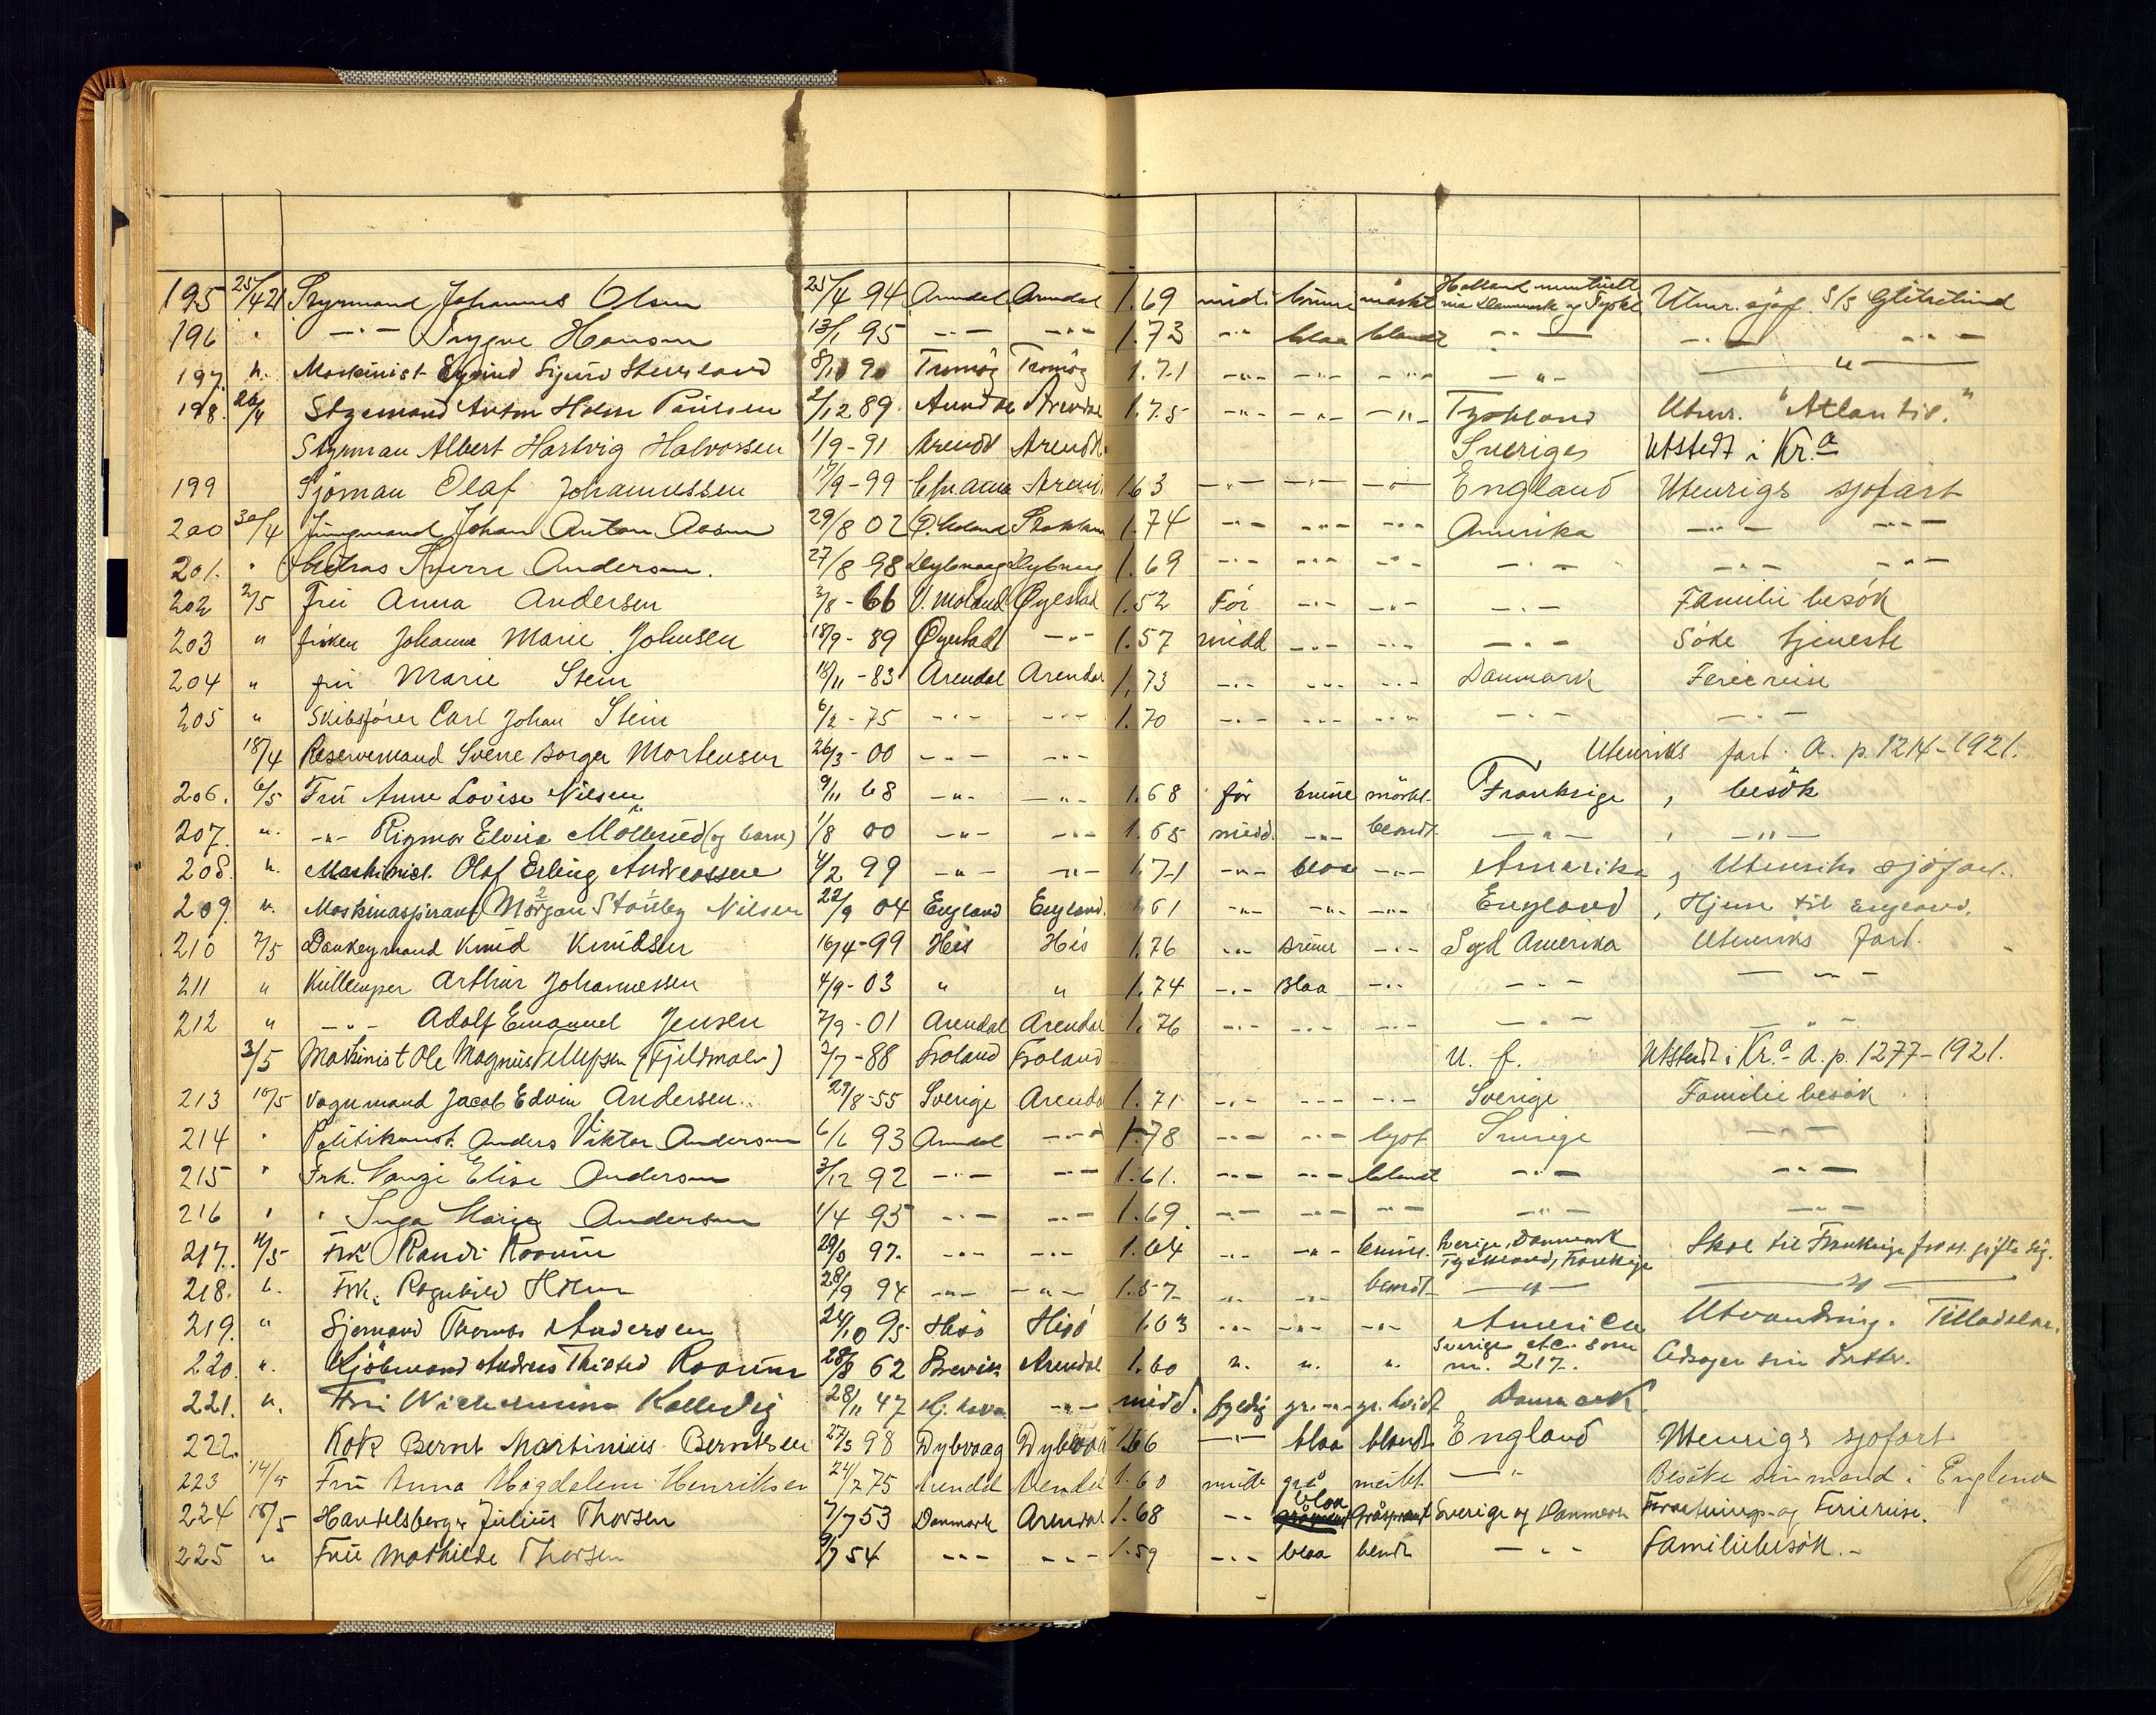 195 25/4 21 Styrmand Johannes Olsen 25/4 94 Arendal Arendal 1.69 mid. brune mørkt Holland muntuelt via Danmark og Tyskl. Utenr. sjøf. S/S Glitretind
196 " -"- Trygve Hansen 13/1 95 -"- -"- 1.73 -"- blaa blondt -"- -"- -"-
197. u. Maskinist Eyvind Sigurd 8/10 90 Tromøy Tromøy 1.71 -"- -"- -"- -"- -"-
198. 26/4 Styrmand Anton Holm Paulsen 2/12 89. Arendal Arendal 1.75 -"- -"- -"- Tyskland Utenr. "Atlantic."
Styrman Albert Hartvig Halvorsen 1/9-91 Arendl Arendl. Sveriges Utstedt i Kr.a
199 Sjöman Olaf Johannessen 17/9-99 Arend. 1.63 -"- -"- -"- England Utenrigs sjofart
200 30/4 Jungmand Johan Anton Aasen 29/8 02 Ø. Moland 1.74 -"- -"- -"- Amerika -"- -"-
201. " Matros Sverre Andersen. 27/8 98 Dybvaag Dybvaag 1.69 -"- -"- -"- -"- -"- -"-
202 2/5 Fru Anna Andersen 2/8-66 V. Moland Øyestad 1.52 För -"- -"- -"- Familie besök
203 " fröken Johanna Marie Johnsen 18/9-89 Øyestad -"- 1.57 midd -"- -"- -"- Söke tjeneste
204 " fru Marie Stein 18/11-83 Arendal Arendal 1.73 -"- -"- -"- Danmark Feriereise
205 " Skibsförer Carl Johan Stein 6/2-75 -"- -"- 1.70 -"- -"- -"- -"- -"-
18/4 Reservemand Sverre Borger Mortensen 26/3-00 -"- -"- Utenriks fart. A. p. 1214-1921.
206. 6/5 Fru Anne Lovise Nilsen 9/11 68 -"- -"- 1.68 för brune mörkt- Frankrige , besök
207. u. -"- Rigmor Elvira Möllerud (og barn) 1/8 00 -"- -"- 1.65 midd. -"- blondt. -"- , -"-
208. u. Maskinist. Olaf Erling Andreassen 4/2 99 -"- -"- 1.71 -"- blaa -"- Amerika , Utenriks sjöfart.
209. u. Maskinaspirant Morgan Stanley Nilsen 22/9 04 England England. 1.61 -"- -"- -"- England , Hjem til England.
210 7/5 Donkeymand Knud Knudsen 16/4-99 His His 1.76 -"- brune -"- Syd Amerika Utenriks fart.
211 " Kullemper Arthur Johannessen 4/9-03 " " 1.74 -"- Blaa -"- -"- -"-
212 " -"- Adolf Emanuel Jensen 7/9-01 Arendal Arendal 1.76 -"- -"- -"- -"- -"-
3/5 Maskinist Ole Magnus Ellefsen (Fjeldmoln) 2/7-88 Froland Froland U. f. Utstedt i Kr.a A. p. 1277-1921.
213 10/5 Vognmand Jacob Edvin Andersen. 29/8-55 Sverige Arendal 1.71 -"- -"- -"- Sverige Familie besök
214 " Politikonst. Anders Viktor Andersen 6/6 93 Arendal -"- 1.78 -"- -"- lyst Sverige -"-
215 " Frk. Elise Andersen 3/12 92 -"- -"- 1.61. -"- -"- blondt -"- -"-
216 " " Inga Marie Andersen 1/4 95 -"- -"- 1.69 -"- -"- -"- -"- -"-
217. 11/5 Frk Randi Roarim 29/8 97. -"- -"- 1.64 -"- -"- brune. Sverige, Danmark Tyskland, Frankrige Skal til Frankrige for at gifte sig.
218. u. Frk. Ragnhild Holm 28/9 94 -"- -"- 1.57 -"- -"- blondt -"- -"-
219. " Sjömand Thomas Andersen 24/10 95 Hisö Hisö 1.63 -"- -"- -"- America Utvandring. Tilladelse.
220. u. Kjöbmand Andreas Thisted 28/8 62 Brevik Arendal 1.60 u. u. u. Sverige etc. som nr. 217. Ledsager sin datter.
221. u. Fru Wilhelmine Kallevig 28/11 47 -"- midd. fyldig gr. -"- gr. hvidt Danmark
222. Kok Bernt Martinius Berntsen 27/3 98 Dybvaag Dybvaag 1.66 -"- blaa blondt England Utenrigs sjofart
223 14/5 Fru Anna Magdalene Henriksen 24/7 75 Arendal Arendal 1.60 midd grå mörkt -"- Besöke sin mand i England
224 18/5 Handelsborger Julius Thorsen 7/7 53 Danmark Arendal 1.68 -"- blaa gråsprængt Sverige og Danmark Forretnings- og Feriereise.
225 " Fru Mathilde Thorsen 9/7 54 -"- -"- 1.59 -"- blaa blondt -"- Familiebesök.-